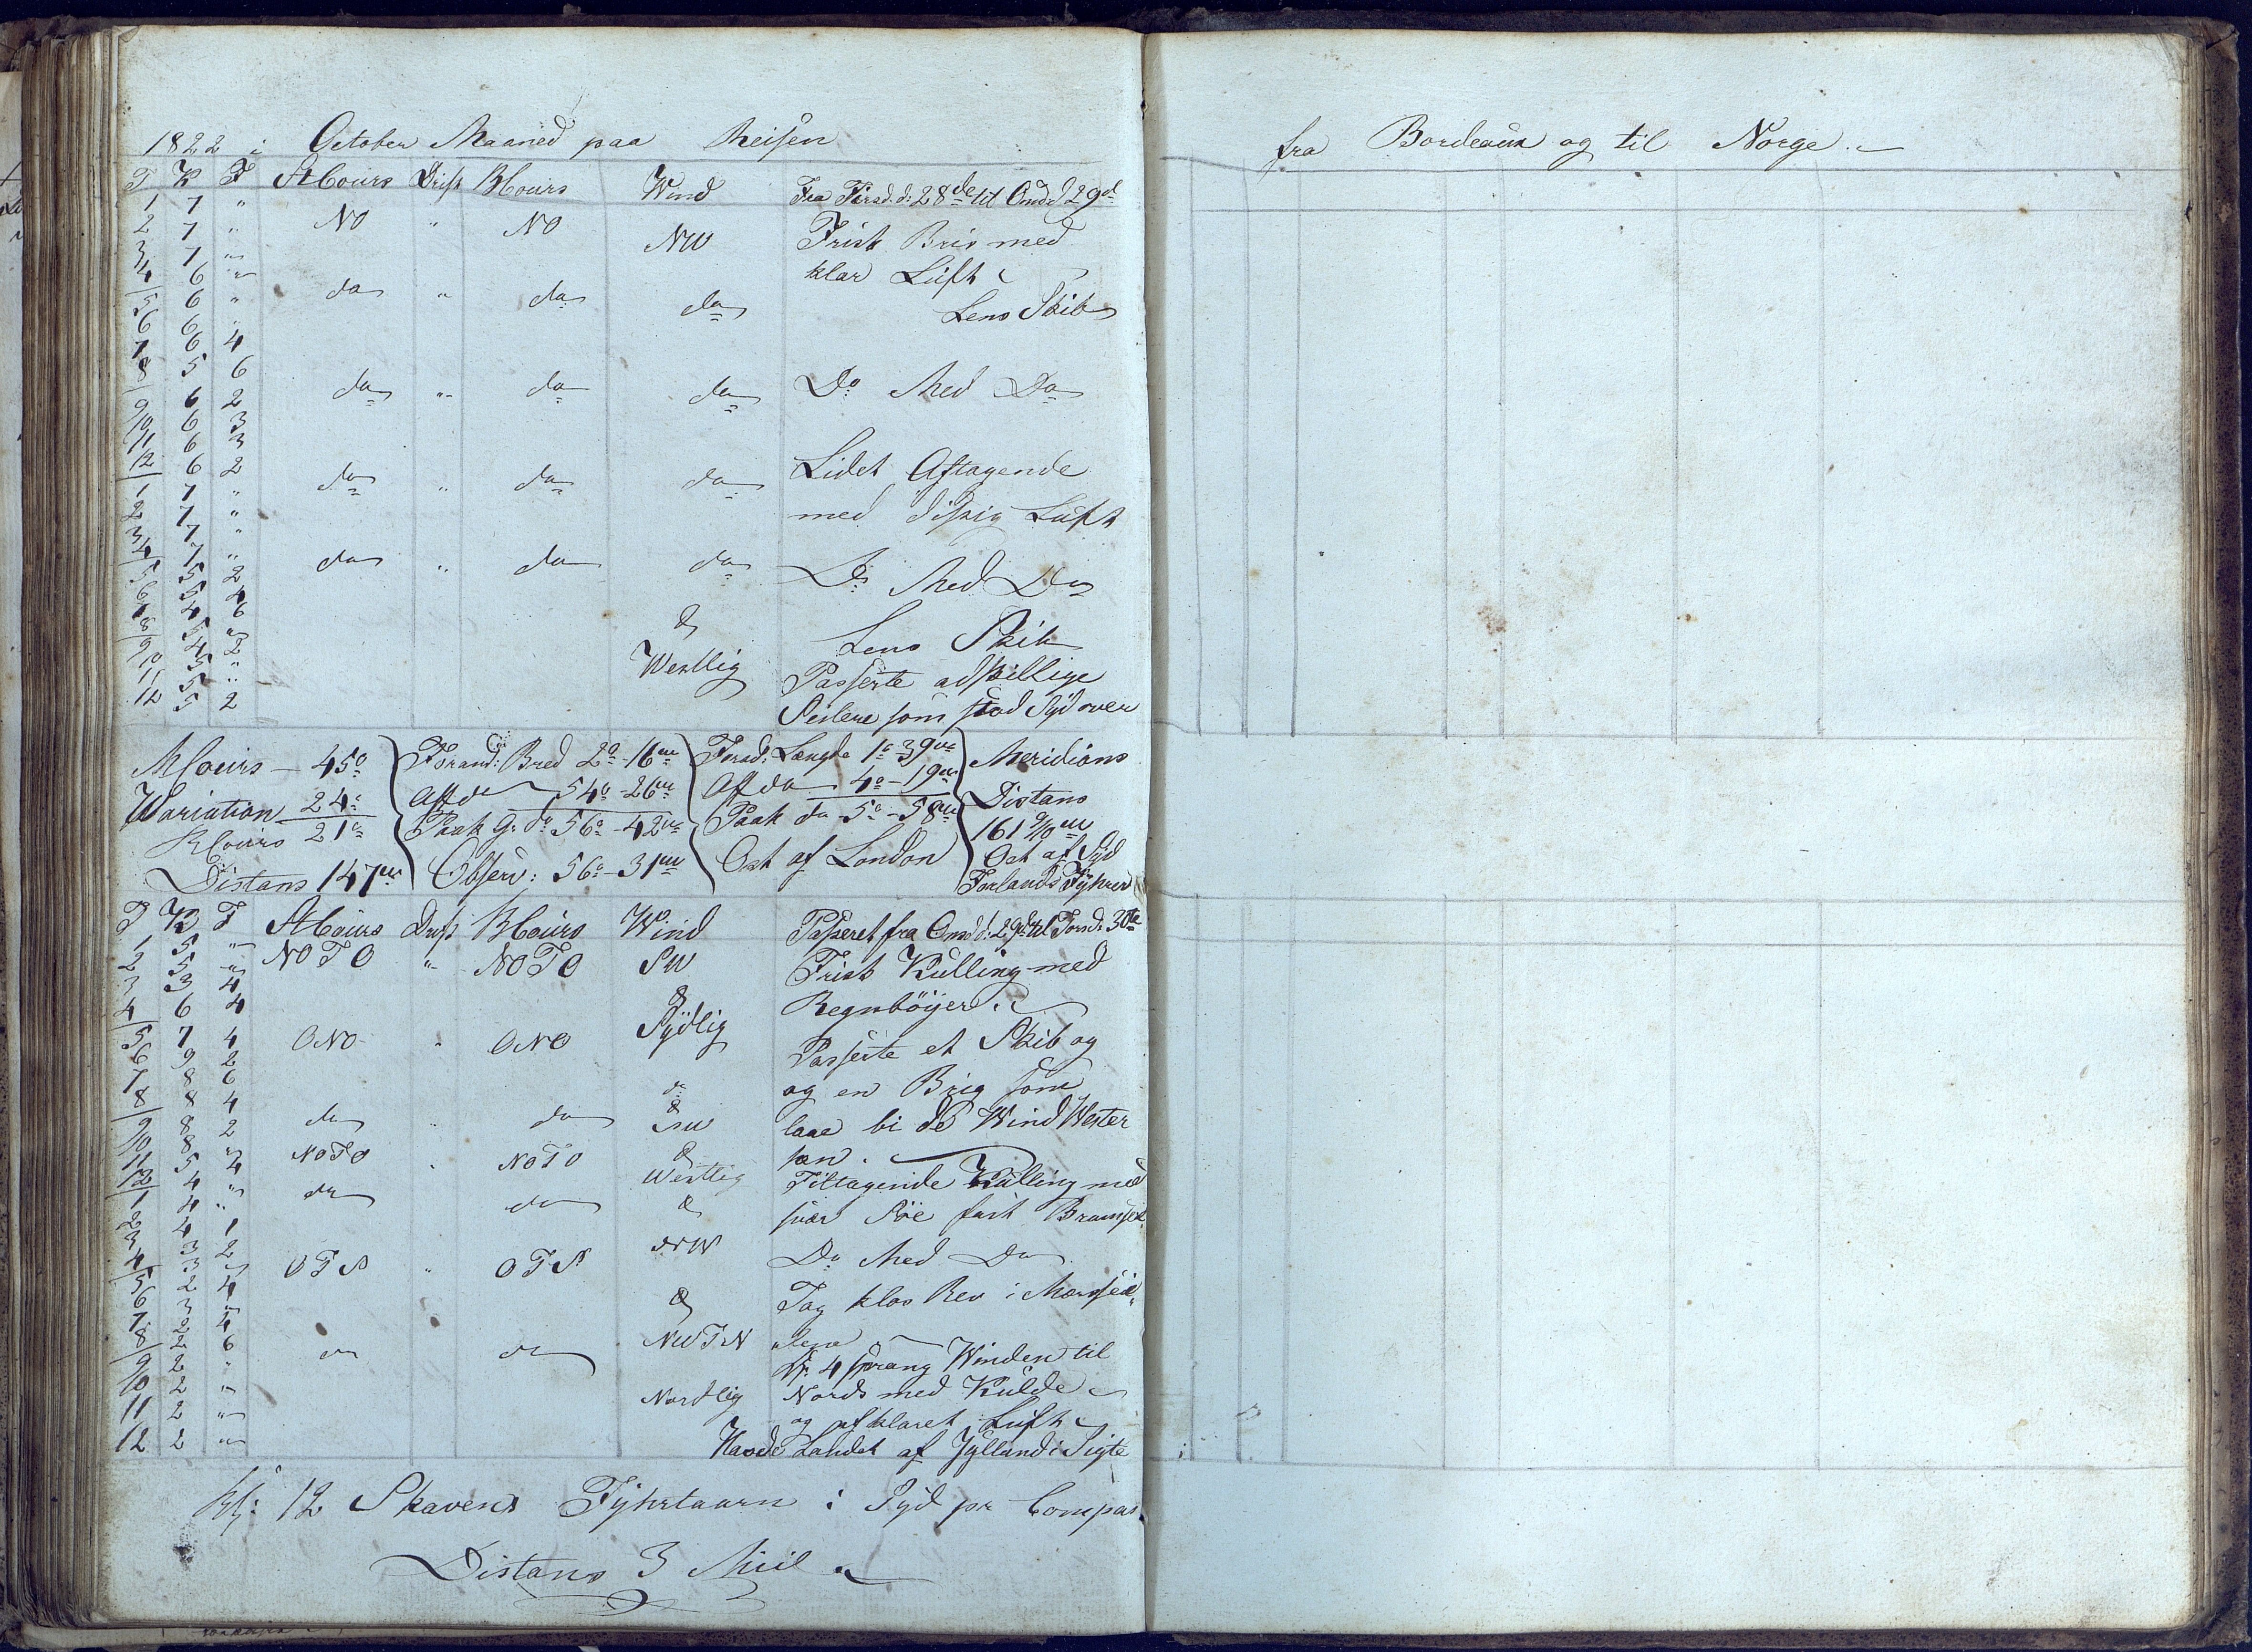 1822 i October Maaned paa Reisen
fra Bordeaux og til Norge.
T K F StCours Drift BCours Wind Fra Tirsd. d: 28de til Onsd 29d
1 7 "
2 7 " NO " NO NW Frisk Bris med
3 7 "
4 6 " klar Luft
5 6 " do " do do Lens Skib
6 6 "
7 6 4
8 5 6
9 6 2 do " do do Do Med Do
10 6 3
11 6 3
12 6 2 Lidet Aftagende
1 7 " do " do do
2 7 " med disig Luft
3 7 "
4 7 " do " do do
5 5 2 Do Med Do
6 5 4
7 4 6 &
8 5 " Lens Skib
9 4 2 Westlig
10 5 " Passerte adskillige
11 5 "
12 5 2 Seilere som stod Syd over
MCours - 45° Forand: Bred 2° - 16m Forad: Længde 1° 39m Meridians
Wariation 24° Affdo 54° - 26m Af do 4° - 19m Distans
RCours 21° Paak G: do 56° - 42m Paak do 5° - 58m 161 9/10 m
Distans 147m Observ: 56° - 31m Ost af London Ost af Syd
Forlands Fyhrer
T K F StCours Drift BCours Wind Passeret fra Onsd d: 29d til Torsd: 30te
1 5 " NOTO " NOTO SW Frisk Kulling med
2 5 "
3 3 4 &
4 6 4 Regnbøyer.
5 7 4 ONO " ONO Sydlig
6 9 2 Passerte et Skib og
7 8 6 og en Brig som
8 8 4 do
9 8 2 do " do & SW laae bi de Wind Wester
10 8 "
11 5 4 NOTO " NOTO & Westlig
12 4 " Tiltagende Kulling med
1 4 " do do & svær Søe fast Bramseil
2 4 1
3 3 2 NW Do Med Do
4 3 " OTS " OTS
5 2 4 & Tag klos Rev i Mersseil
6 3 "
7 2 4 NWTN
8 2 6 do do Kl: 4 sprang Winden til
9 2 "
10 2 " Nordlig Nords med Kulde
11 2 " og afklaret Luft
12 2 " Havde Landet af Jylland i Sigte
Kl: 12 Skavens Fyhrtaarn i Syd pr Compas.
Distans 3 Miil